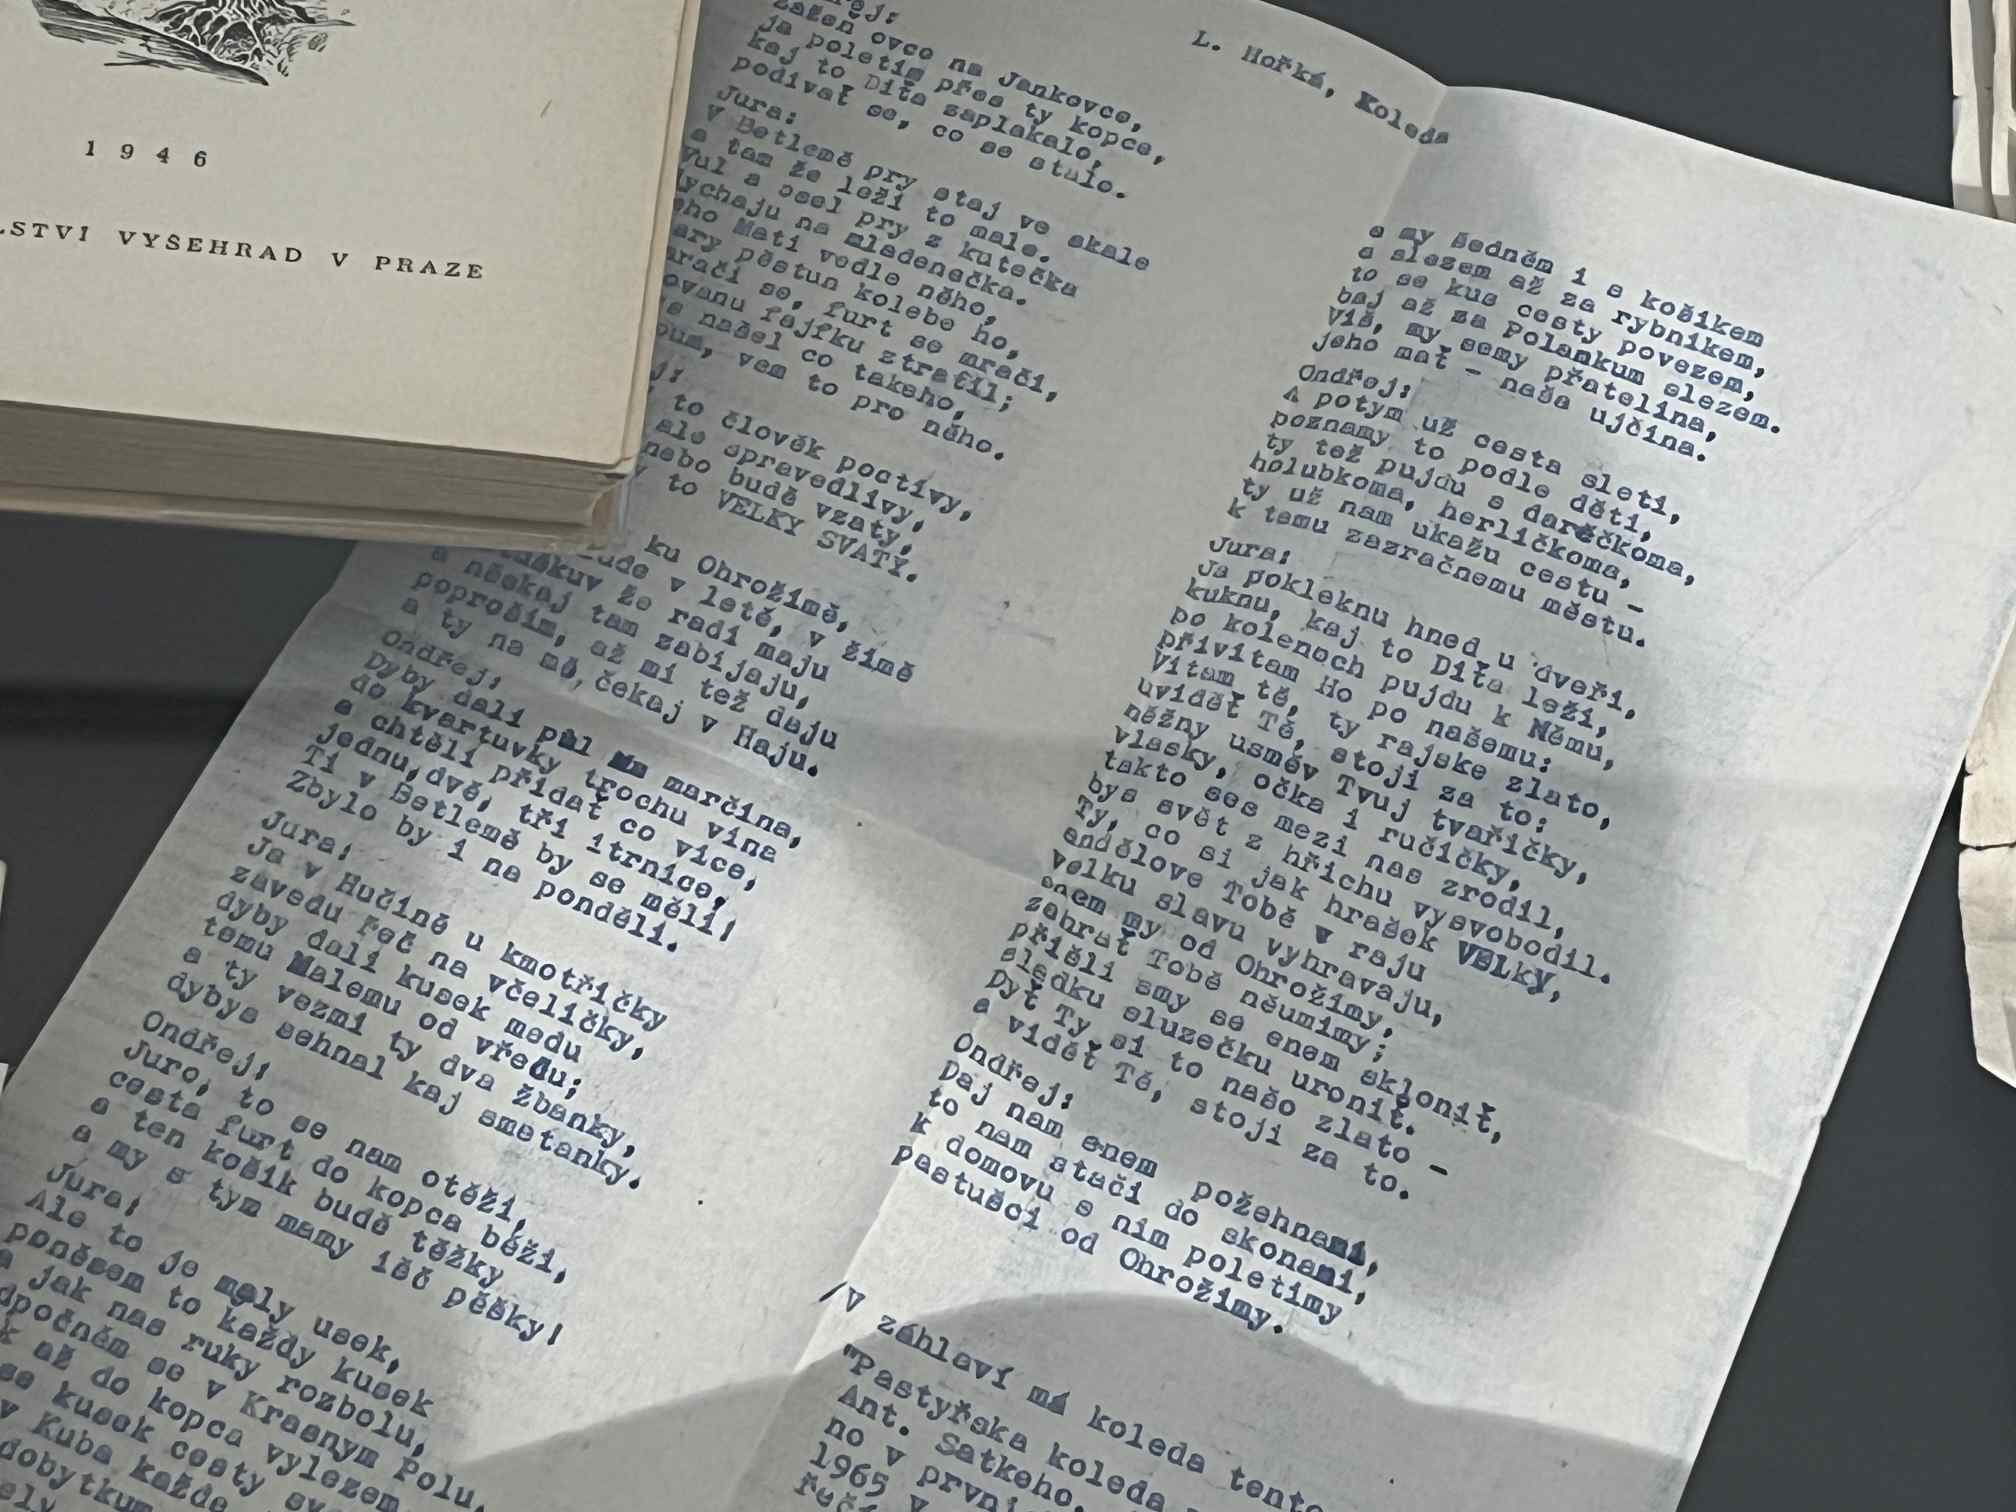 1946
LSTVÍ VYŠEHRAD V PRAZE
L. Hořká, Koleda
Zažeň ovce na Jankovce,
ja poletim přes ty kopce,
kaj to Diťa zaplakalo,
podivať se, co se stalo.
Jura:
V Betlemě pry staj ve skale
a tam že leži to male.
Vul a osel pry z kutečka
dychaju na mladenečka.
Mati vedle něho,
pěstun kolebe ho,
mrači se, furt se mrači,
fajfku ztratil;
našel co takeho,
vem to pro něho.
to člověk poctivy,
ale spravedlivy,
nebo budě vzaty,
to VELKY SVATY.
ku Ohrožimě,
v letě, v žimě
že radi maju
a něskaj tam zabijaju,
poprošim, až mi tež daju
a ty na mě, čekaj v Haju.
Ondřej:
Dyby dali pul marčina,
do kvartuvky trochu vina
a chtěli přidať co vice,
jednu, dvě, tři itrnice,
Ti v Betlemě by se měli!
Zbylo by i na ponděli.
Jura:
Ja v Hučině u kmotřičky
zavedu řeč na včeličky,
dyby dali kusek medu
temu Malemu od vředu;
a ty vezmi ty dva žbanky,
dybys sehnal kaj smetanky.
Ondřej:
Juro, to se nam otěži,
cesta furt do kopca běži,
a ten košik budě těžky
a my s tym mamy išč pěšky!
Jura:
Ale to je maly usek,
poněsem to každy kusek
a jak nas ruky rozbolu,
odpočněm se v Krasnym Polu.
až do kopca vylezem
kusek cesty
Kuba každe
dobytkum
a my šedněm i s košikem
a slezem až za rybnikem,
to se kus cesty povezem,
baj až za Polankum slezem.
Viš, my semy přatelina,
jeho mať - naša ujčina.
Ondřej:
A potym už cesta sleti,
poznamy to podle děti,
ty tež pujdu s darečkoma,
holubkoma, herličkoma,
ty už nam ukažu cestu -
k temu zazračnemu městu.
Jura:
Ja pokleknu hned u dveři,
kuknu, kaj to Diťa leži,
po kolenoch pujdu k Němu,
přivitam Ho po našemu:
Vitam tě, ty rajske zlato,
uviděť Tě, stoji za to;
něžny usměv Tvuj tvařičky,
vlasky, očka i ručičky,
takto ses mezi nas zrodil,
bys svět z hřichu vysvobodil.
Ty, co si jak hrašek VELKY,
anďělove Tobě v raju
velku slavu vyhravaju,
enem my od Ohrožimy,
zahrať Tobě něumimy;
přišli smy se enem skloniť,
sledku sluzečku uroniť.
Dyť Ty si to našo zlato -
a viděť Tě, stoji za to.
Ondřej:
Daj nam enem požehnani,
to nam stači do skonani,
k domovu s nim poletimy
pastušci od Ohrožimy.
V záhlaví má koleda tento
"Pastyřska koleda
Ant. Satkeho,
no v první
1965 v